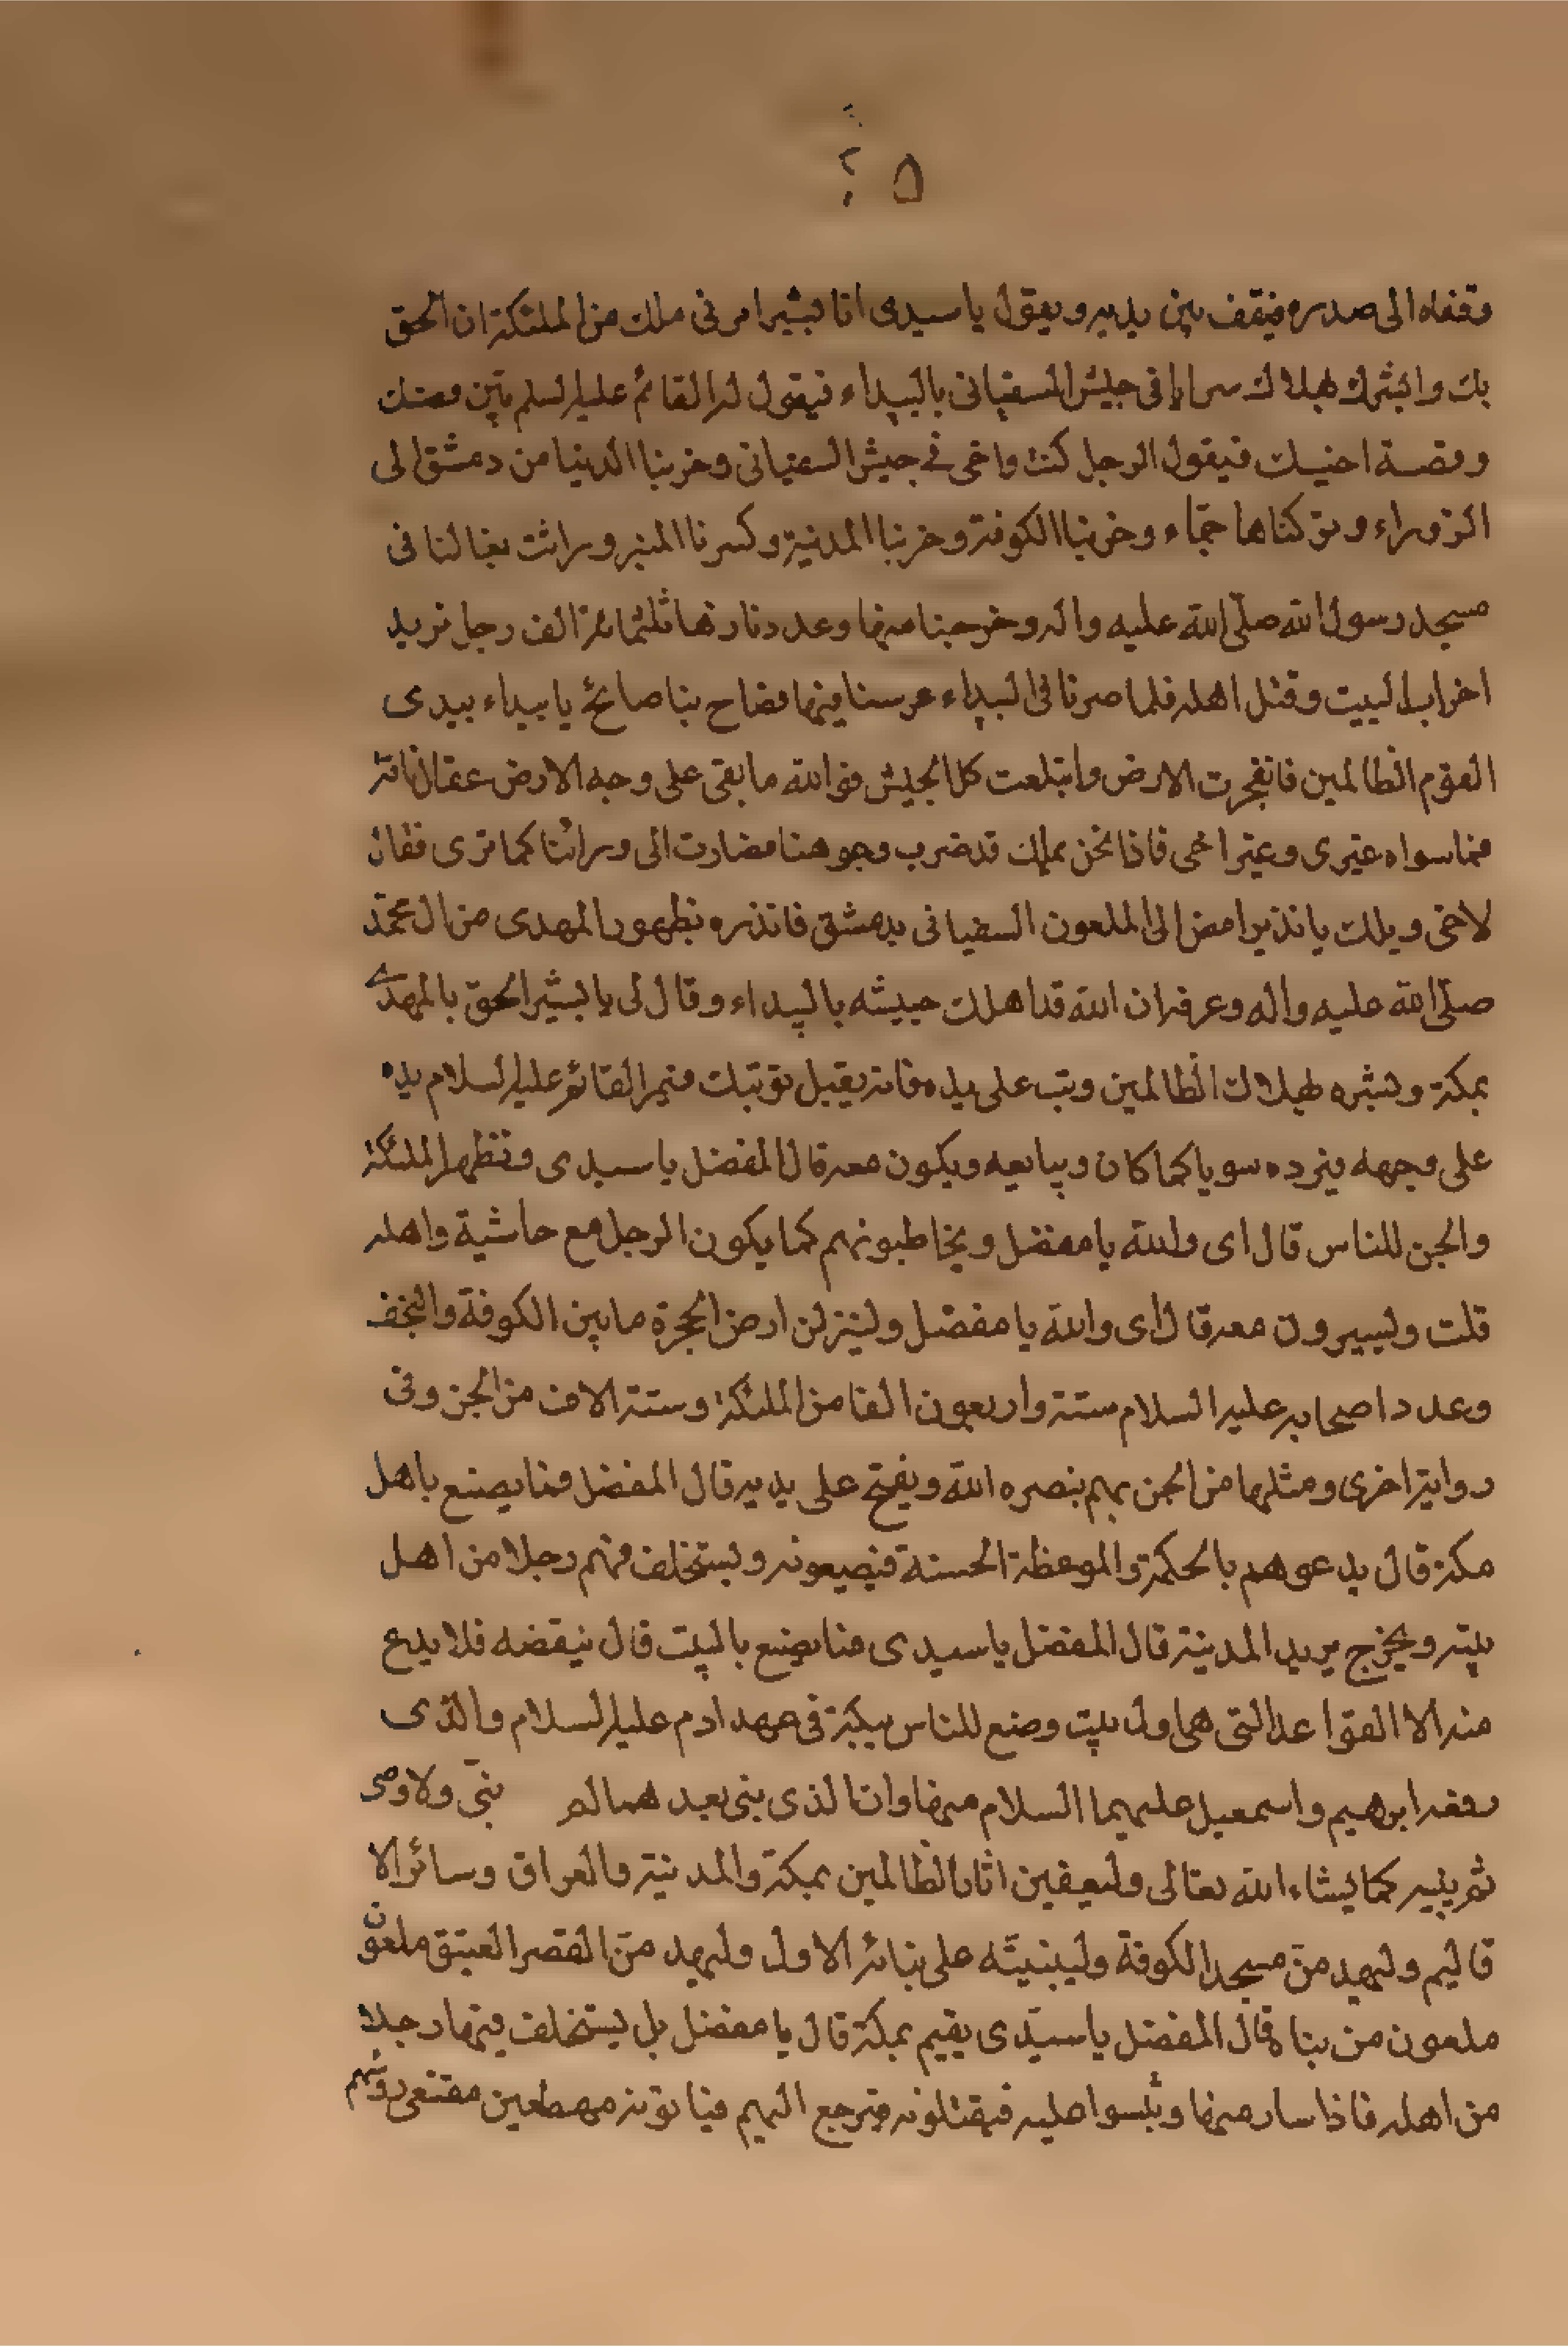 ٢٥
وقفاه الى صدره فيقف بين يديه ويقول يا سيدى انا بشير امرنى ملك من الملئكة ان الحق
بك وابشرك بهلاك سرايا فى جيش السفيانى بالبيداء فيقول له القائم عليه السلم بين قصتك
وقصة اخيك فيقول الرجل كنت واخى فى جيش السفيانى وخربنا الدنيا من دمشق الى
الزوراء وتركناها جماء وخربنا الكوفة وخربنا المدينة وكسرنا المنبر وراثت بغالنا فى
مسجد رسول الله صلى الله عليه واله وخرجنا منها وعددنا رها ثلثمائة الف رجل نريد
اخراب البيت وقتل اهله فلما صرنا فى البيداء عرسنا فيها فصاح بنا صائح يا بيداء بيدى
القوم الظالمين فانفجرت الارض وابتلعت كل الجيش فوالله ما بقى على وجه الارض عقال ناقة
فما سواه غيرى وغير اخى فاذا نحن بملك قد ضرب وجوهنا فصارت الى ورائنا كما ترى فقال
لاخى ويلك يا نذير امض الى الملعون السفيانى بدمشق فانذره بظهور المهدى من ال محمد
صلى الله عليه واله وعرفه ان الله قد اهلك جيشه بالبيداء وقال لى يا بشير الحق بالمهدى
بمكة وبشره بهلاك الظالمين وتب على يده فانه يقبل توبتك فيمر القائم عليه السلام يده
على وجهه فيرده سويا كما كان ويبايعه ويكون معه قال المفضل يا سيدى وتظهر الملئكة
والجن للناس قال اى والله يا مفضل ويخاطبونهم كما يكون الرجل مع حاشية واهله
قلت وليسيرون معه قال اى والله يا مفضل ولينزلن ارض الهجرة ما بين الكوفة والنجف
وعدد اصحابه عليه السلام ستة واربعون الفا من الملئكة وستة الاف من الجن وفى
رواية اخرى ومثلها من الجن بهم ينصره الله ويفتح على يديه قال المفضل فما يصنع باهل
مكة قال يدعوهم بالحكمة والموعظة الحسنة فيطيعونه ويستخلف فيهم رجلا من اهل
بيته ويخرج يريد المدينة قال المفضل يا سيدى فما يصنع بالبيت قال ينقضه فلا يدع
منه الا القواعد التى هى اول بيت وضع للناس ببكة فى عهد ادم عليه السلام والذى
رفعه ابرهيم واسمعيل عليهما السلام منها وان الذى بنى بعدهما لم نبى ولا وصى
ثم يبنيه كما يشاء الله تعالى وليعفين اثار الظالمين بمكة والمدينة والعراق وسائر الا
قاليم وليهدمن مسجد الكوفة وليبنينه على بنائه الاول وليهدمن القصر العتيق ملعون
ملعون من بناه قال المفضل يا سيدى يقيم بمكة قال يا مفضل بل يستخلف فيها رجلا
من اهله فاذا سار منها وثبوا عليه فيقتلونه فيرجع اليهم فياتونه مهطعين مقنعى رؤسهم